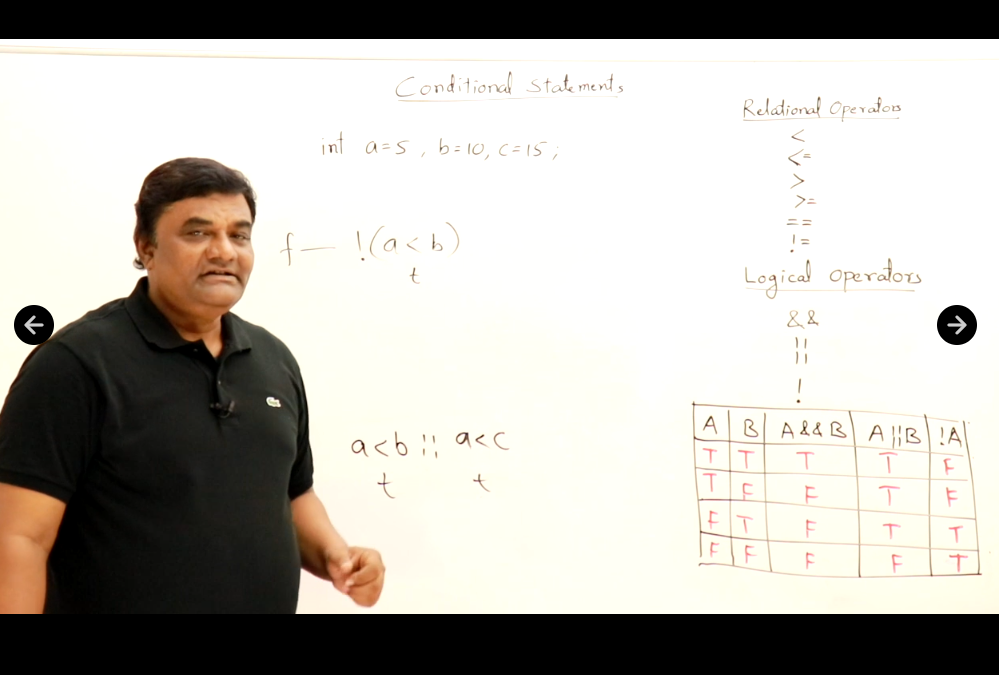 Conditional Statements
int a=5, b=10, c=15;
f — !(a<b)
t
a<b || a<c
t t
Relational Operators
<
<=
>
>=
==
!=
Logical Operators
&&
||
!
A B A&&B A||B !A
T T T T F
T F F T F
F T F T T
F F F F T